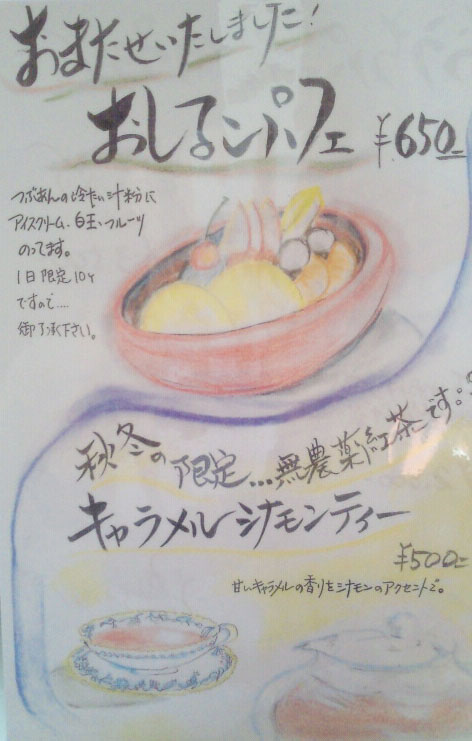 おまたせいたしました!
おしるこパフェ ¥650-
つぶあんの冷たい汁粉に
アイスクリーム、白玉、フルーツ
のってます。
1日限定10ヶ
ですので....
御了承下さい。
秋冬の限定...無農薬紅茶です。
キャラメルシナモンティー
¥500-
甘いキャラメルの香りをシナモンのアクセントで。